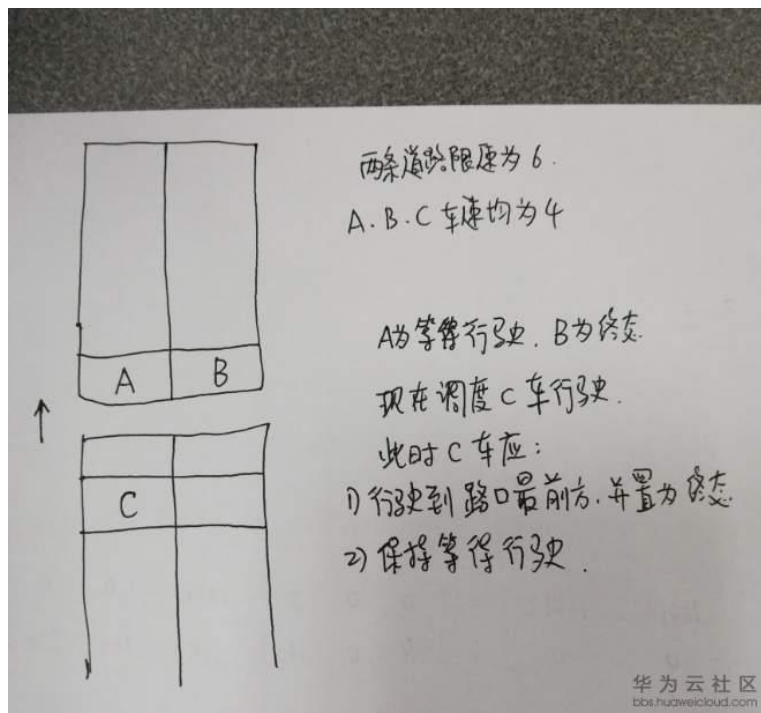 两条道路限速为6.
A.B.C车速均为4
A为等待行驶.B为终态.
A
B
现在调度C车行驶.
此时C车应:
C
1)行驶到路口最前方.并置为终态.
2)保持等待行驶.
华为云社区
bbs.huaweicloud.com